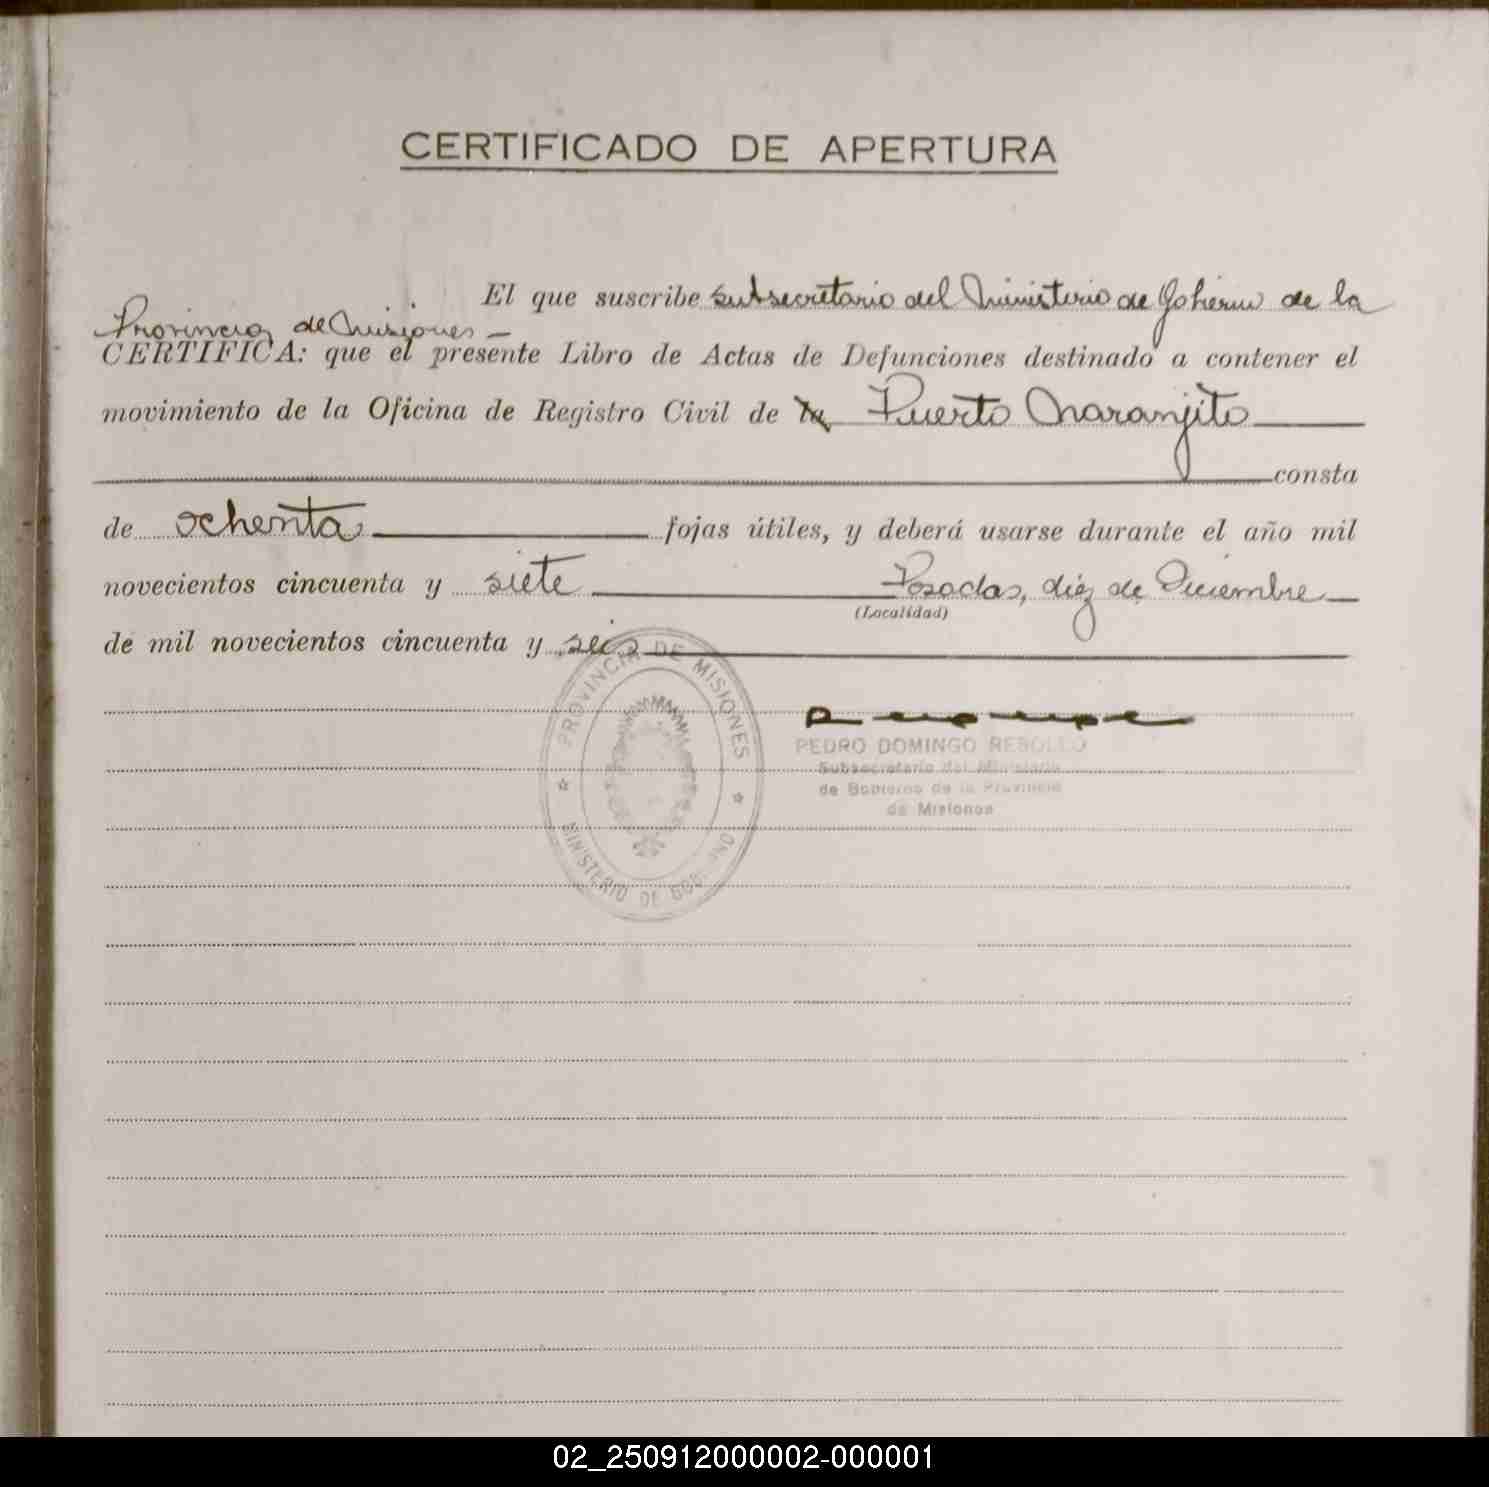 CERTIFICADO DE APERTURA
El que suscribe subsecretario del Ministerio de Gobierno de la
Provincia de Misiones —
CERTIFICA: que el presente Libro de Actas de Defunciones destinado a contener el
movimiento de la Oficina de Registro Civil de la Puerto Naranjito
consta
de ochenta fojas útiles, y deberá usarse durante el año mil
novecientos cincuenta y siete Posadas, diez de Diciembre
(Localidad)
de mil novecientos cincuenta y seis
PROVINCIA DE MISIONES
MINISTERIO DE GOB.
PEDRO DOMINGO REBOLLO
Subsecretario del Ministerio
de Gobierno de la Provincia
de Misiones
02_250912000002-000001